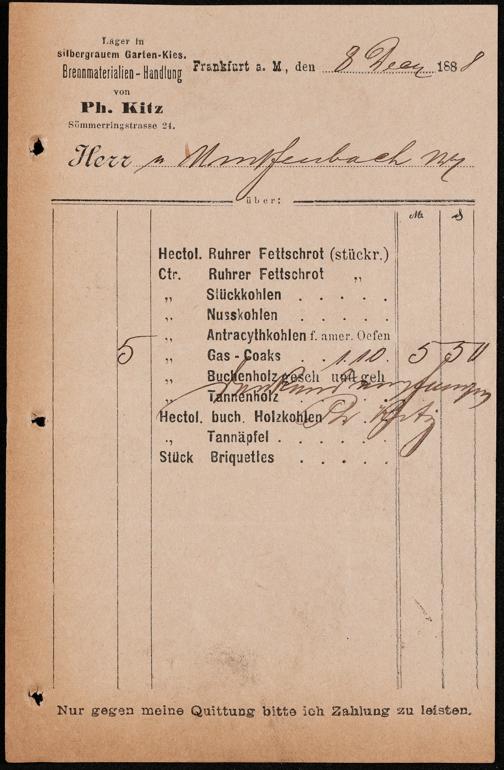 Lager in
silbergrauem Garten-Kies.
Brennmaterialien-Handlung
von
Ph. Kitz
Sömmerringstrasse 24.
Frankfurt a. M., den 8 Dec 1888
Herr
über:
M. ₰
Hectol. Ruhrer Fettschrot (stückr.)
Ctr. Ruhrer Fettschrot „
„ Stückkohlen . . . . .
„ Nusskohlen . . . . .
„ Antracythkohlen f. amer. Oefen
5 „ Gas-Coaks . . 1.10. 5 50
„ Buchenholz gesch und geh
„ Tannenholz
dankend empfangen
Hectol. buch. Holzkohlen
Ph. Kitz
„ Tannäpfel . . . . .
Stück Briquettes . . . . .
Nur gegen meine Quittung bitte ich Zahlung zu leisten.